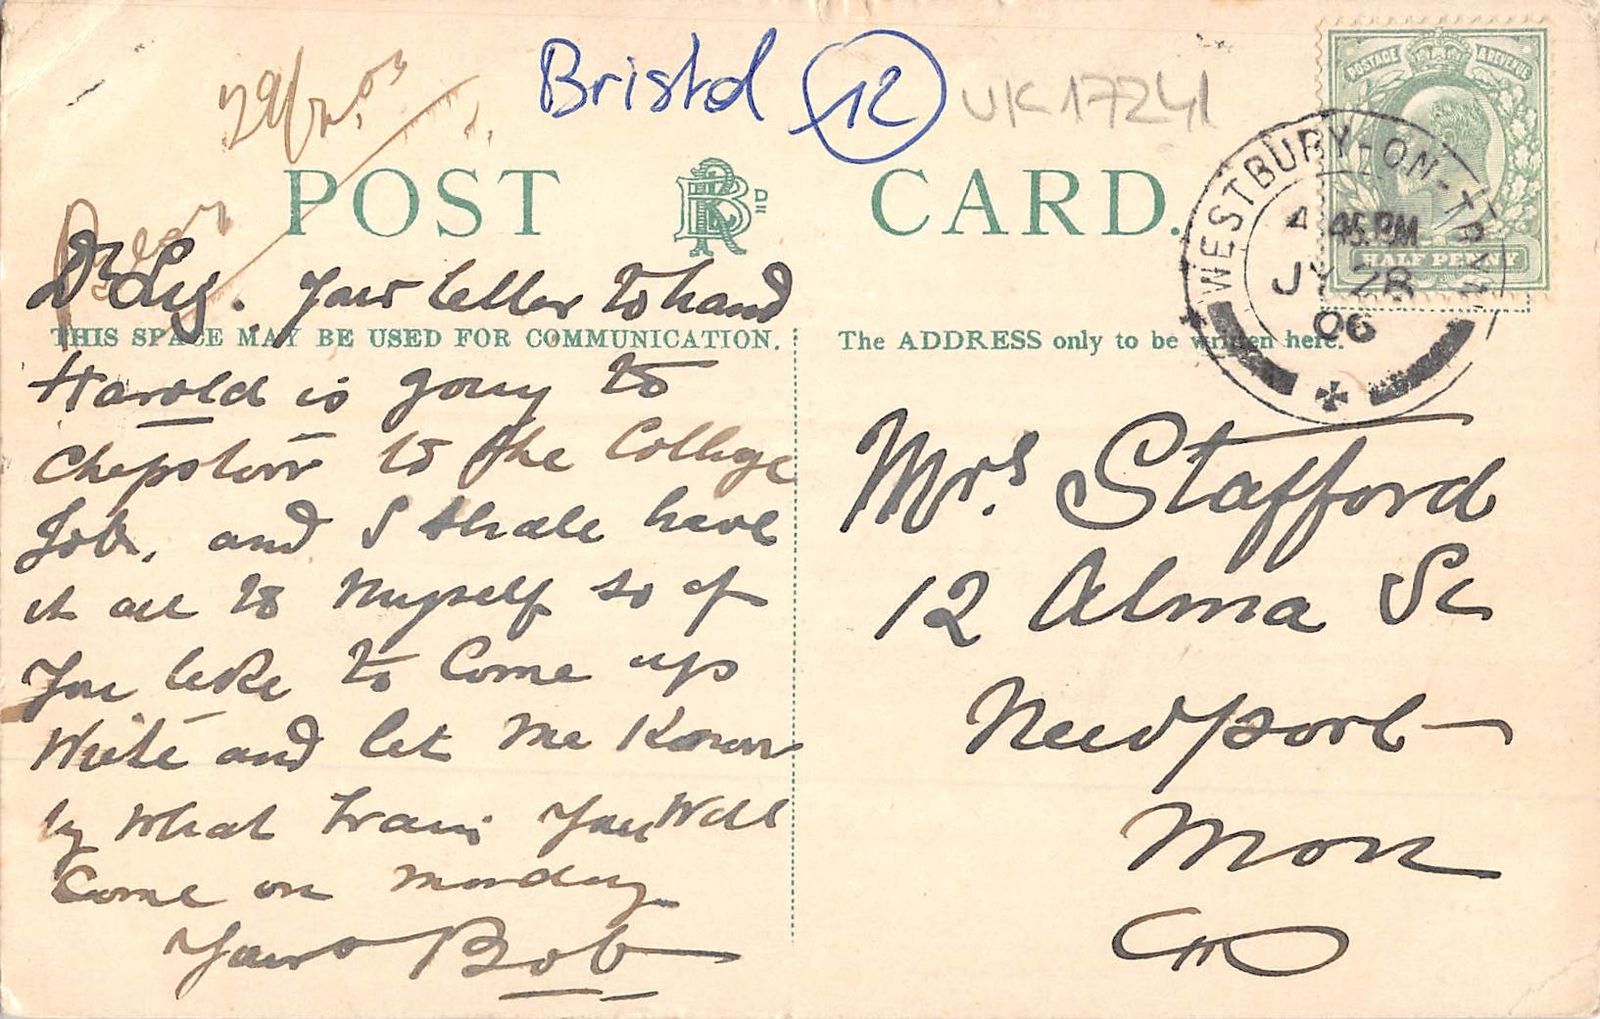 Bristol 12 UK17241
POSTAGE & REVENUE
HALF PENNY
WESTBURY-ON-TRYM
4 45.PM
JY 28
06
POST CARD.
THIS SPACE MAY BE USED FOR COMMUNICATION.
The ADDRESS only to be written here.
Your letter to hand
Harold is going to
Chepstow to the College
Job, and I shall have
it all to Myself so if
You like to Come up
Write and let Me Know
by What train You Will
Come on Monday
Yours Bob
Mrs. Stafford
12 Alma St
Newport
Mon